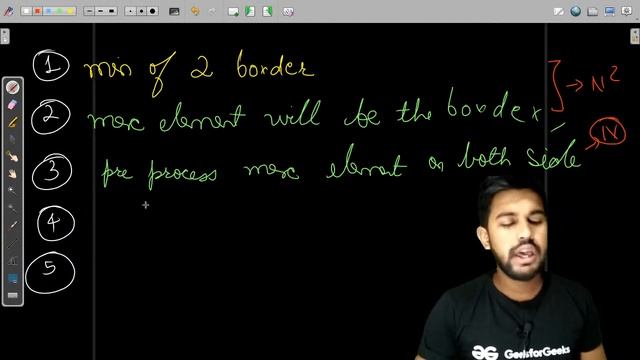 1 min of 2 border
2 max element will be the border → N²
3 pre process max element on both side → N
4
5
GeeksforGeeks